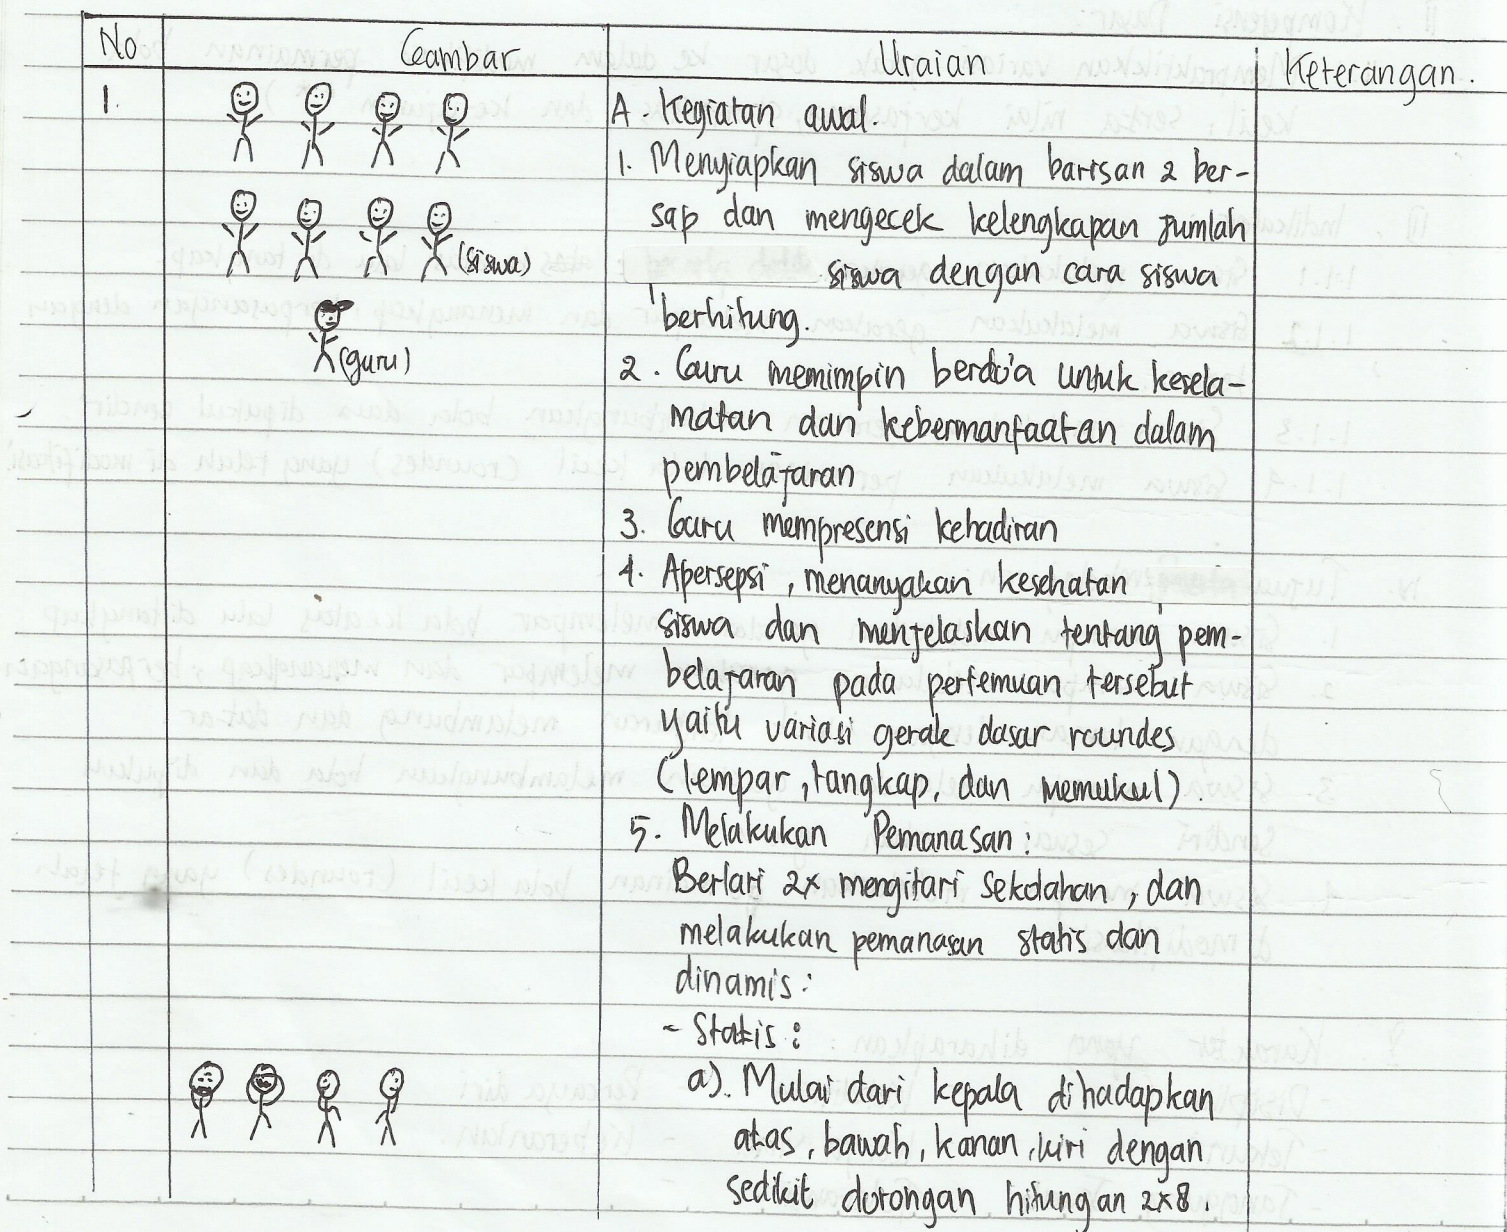 No
Gambar
Uraian
Keterangan.
1.
A. Kegiatan awal.
1. Menyiapkan siswa dalam barisan 2 ber-
sap dan mengecek kelengkapan jumlah
siswa dengan cara siswa
berhitung.
(siswa)
(guru)
2. Guru memimpin berdo'a untuk kesela-
matan dan kebermanfaatan dalam
pembelajaran
3. Guru mempresensi kehadiran
4. Apersepsi, menanyakan kesehatan
siswa dan menjelaskan tentang pem-
belajaran pada pertemuan tersebut
yaitu variasi gerak dasar roundes
(lempar, tangkap, dan memukul).
5. Melakukan Pemanasan:
Berlari 2x mengitari sekolahan, dan
melakukan pemanasan statis dan
dinamis:
- Statis:
a). Mulai dari kepala dihadapkan
atas, bawah, kanan, kiri dengan
sedikit dorongan hitungan 2x8.